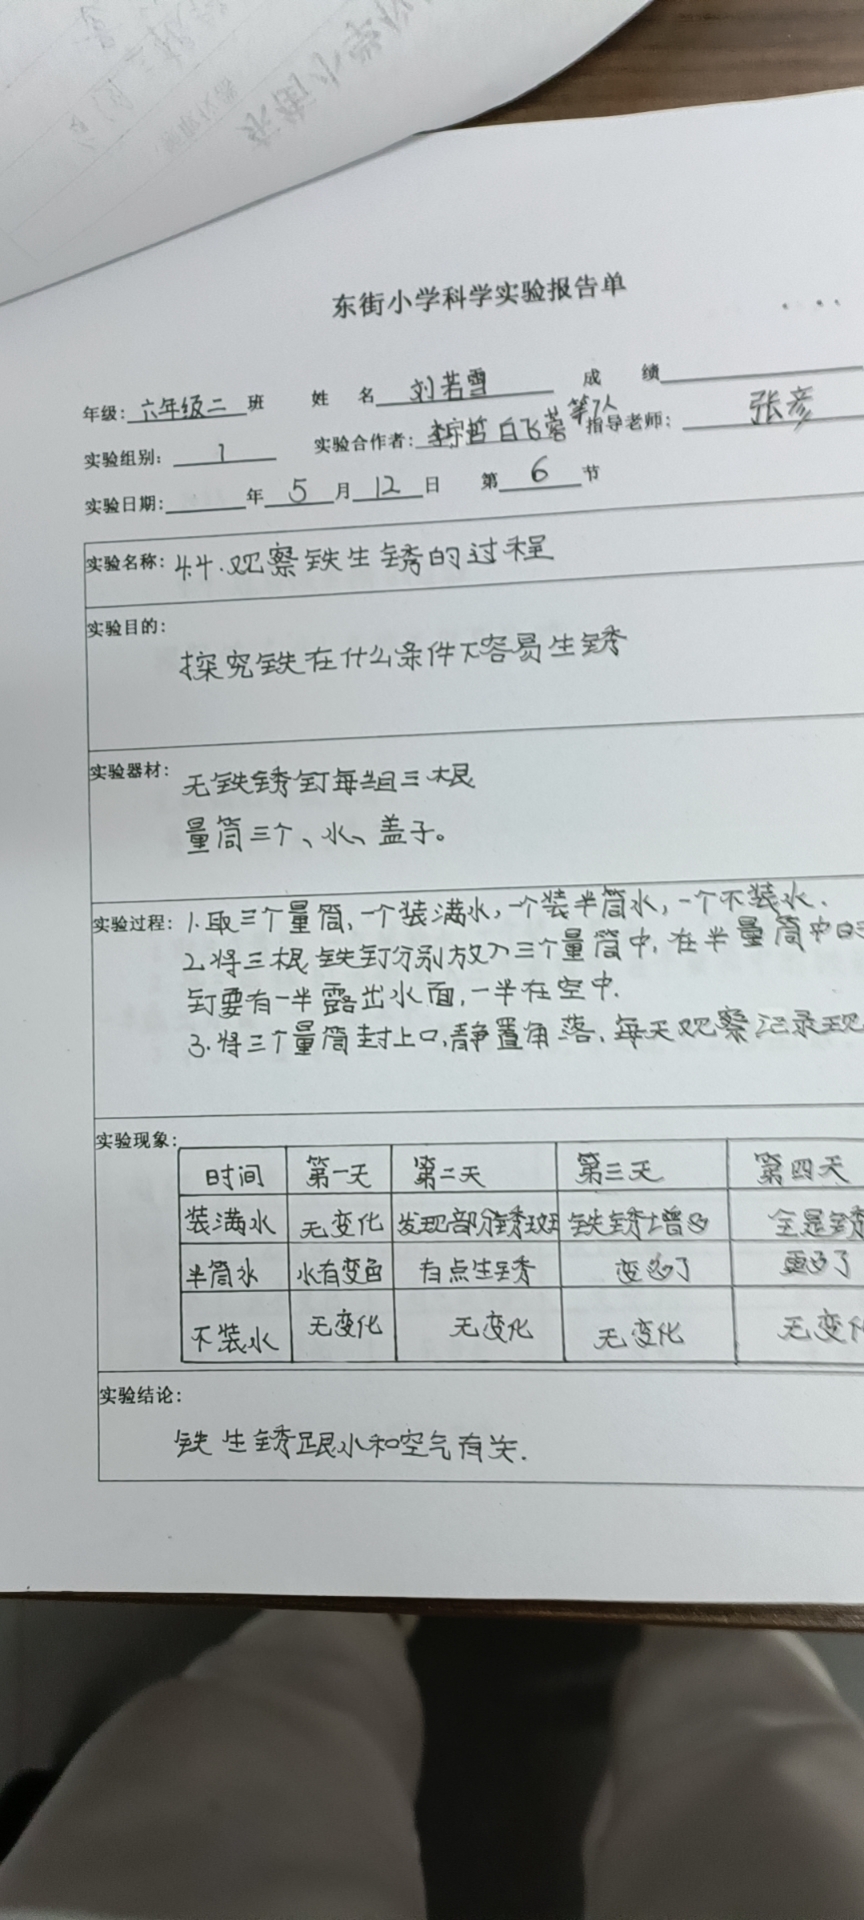 东街小学科学实验报告单
年级: 六年级二 班 姓 名 刘若雪 成 绩
实验组别: 1 实验合作者: 李宗哲 白飞蓉 等7人 指导老师: 张彦
实验日期: 年 5 月 12 日 第 6 节
实验名称: 4.4.观察铁生锈的过程
实验目的:
探究铁在什么条件下容易生锈
实验器材: 无铁锈钉每组三根
量筒三个、水、盖子。
实验过程: 1.取三个量筒,一个装满水,一个装半筒水,一个不装水.
2.将三根铁钉分别放入三个量筒中,在半量筒中的
钉要有一半露出水面,一半在空中.
3.将三个量筒封上口,静置角落,每天观察记录现
实验现象:
时间 第一天 第二天 第三天 第四天
装满水 无变化 发现部分锈斑 铁锈增多 全是锈
半筒水 水有变色 有点生锈 变多了 更多了
不装水 无变化 无变化 无变化 无变化
实验结论:
铁生锈跟水和空气有关.